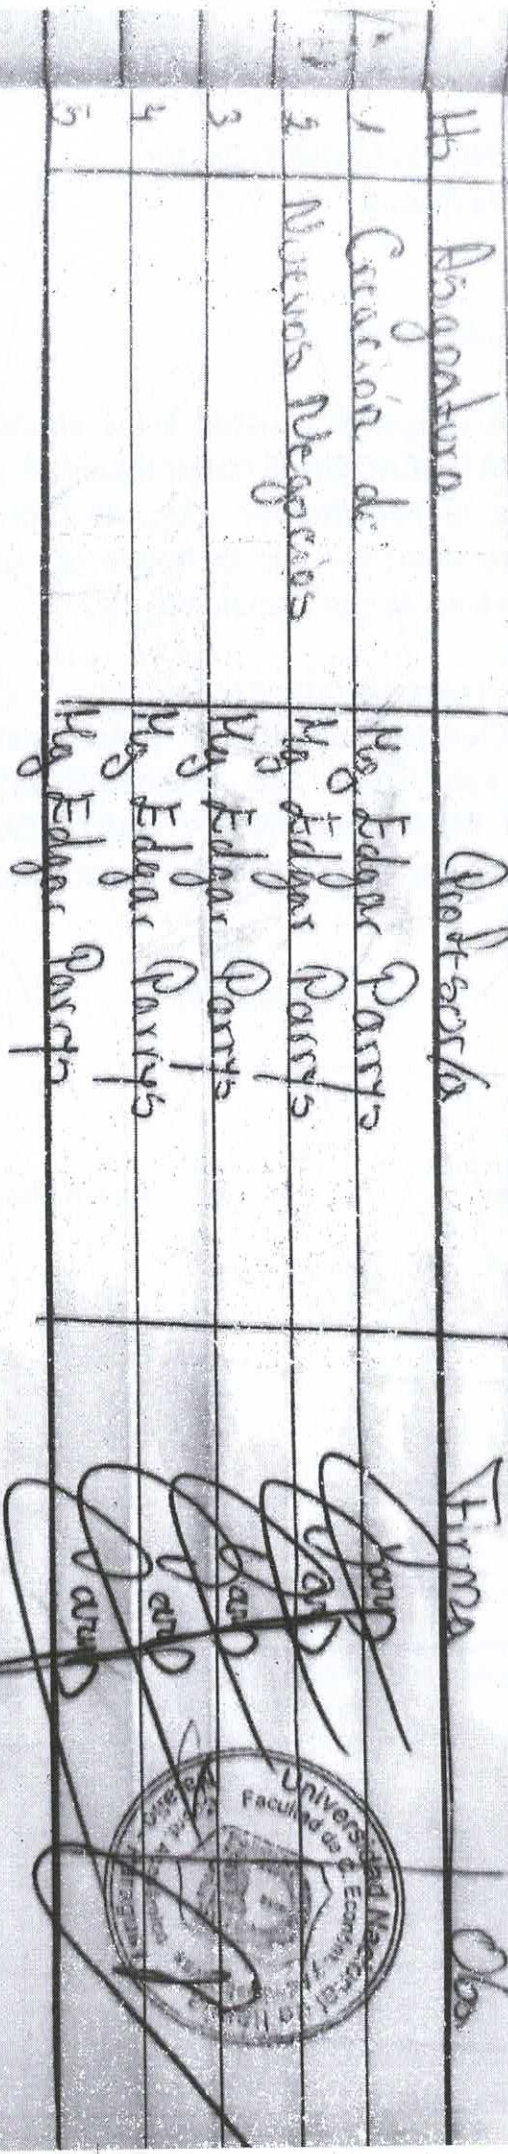 Hs Asignatura Profesor/a Firma Obs
1 Creación de Mg Edgar Parrys
2 Nuevos Negocios Mg Edgar Parrys
3 Mg Edgar Parrys
4 Mg Edgar Parrys
5 Mg Edgar Parrys
Universidad Nacional
Facultad de C. Econom.